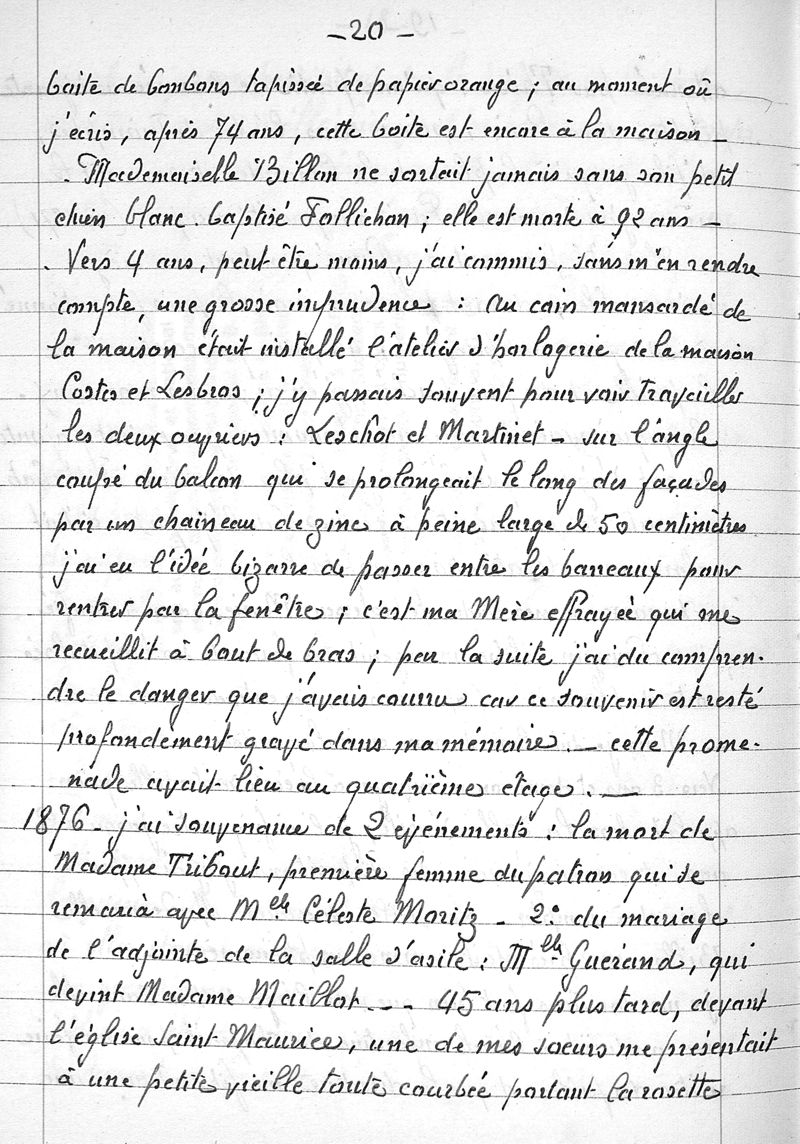 - 20 -
boite de bonbons tapissée de papier orange ; au moment où
j'écris, après 74 ans, cette boite est encore à la maison -
. Mademoiselle Billon ne sortait jamais sans son petit
chien blanc. baptisé Follichon ; elle est morte à 92 ans -
. Vers 4 ans, peut être moins, j'ai commis, sans m'en rendre
compte, une grosse imprudence : au coin mansardé de
la maison était installé l'atelier d'horlogerie de la maison
Costes et Lesbros ; j'y passais souvent pour voir travailler
les deux ouvriers : Leschot et Martinet - sur l'angle
coupé du balcon qui se prolongeait le long des façades
par un chaineau de zinc à peine large de 50 centimètres
j'ai eu l'idée bizarre de passer entre les barreaux pour
rentrer par la fenêtre ; c'est ma Mère effrayée qui me
recueillit à bout de bras ; par la suite j'ai du compren-
dre le danger que j'avais couru car ce souvenir est resté
profondément gravé dans ma mémoire. - cette prome-
nade avait lieu au quatrième étage. -
1876 - j'ai souvenance de 2 événements : la mort de
Madame Tribout, première femme du patron qui se
remaria avec Melle Céleste Moritz - 2° du mariage
de l'adjointe de la salle d'asile : Melle Guerand, qui
devint Madame Maillot - - - 45 ans plus tard, devant
l'église Saint Maurice, une de mes soeurs me présentait
à une petite vieille toute courbée portant la rosette